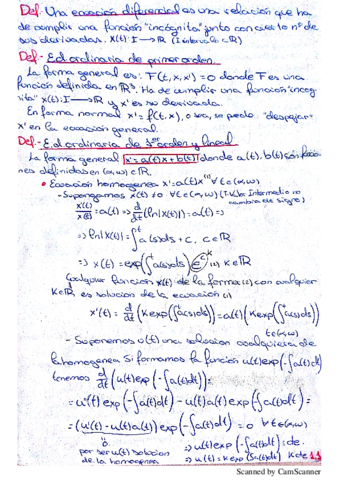 Def: Una ecuación diferencial es una relación que ha
de cumplir una función "incógnita" junto con cierto nº de
sus derivadas. x(t): I → ℝ (I intervalo ⊂ ℝ)
Def:- E.d. ordinaria de primer orden.
La forma general es: F(t, x, x') = 0 donde F es una
función definida en ℝ³. Ha de cumplir una función "incóg-
nita" x(t): I → ℝ y x' es su derivada.
En forma normal x' = f(t, x), o sea, se puede "despejar"
x' en la ecuación general.
Def:- E.d. ordinaria de 1er orden y lineal
La forma general x' = a(t)x + b(t) donde a(t), b(t) son funcio-
nes definidas en (α, ω) ⊂ ℝ.
• Ecuación homogénea x' = a(t)x (1) ∀t ∈ (α, ω)
- Supongamos x(t) ≠ 0 ∀t ∈ (α, ω) (T. Valor Intermedio no
cambia de signo)
x'(t)/x(t) = a(t) ⇒ d/dt (ln|x(t)|) = a(t) ⇒
⇒ ln|x(t)| = ∫ᵗ a(s)ds + c, c ∈ ℝ
⇒ x(t) = exp(∫ᵗ a(s)ds) e^c (2) K ∈ ℝ
Cualquier función x(t) de la forma (2) con cualquier
K ∈ ℝ, es solución de la ecuación (1)
x'(t) = d/dt (K exp(∫ᵗ a(s)ds)) = a(t)(K exp(∫ᵗ a(s)ds))
t ∈ (α, ω)
- Suponemos u(t) una solución cualquiera de
la homogénea. Si formamos la función u(t)exp(-∫a(t)dt)
tenemos d/dt (u(t)exp(-∫a(t)dt)) =
= u'(t) exp(-∫a(t)dt) - u(t)a(t) exp(-∫a(t)dt) =
= (u'(t) - u(t)a(t)) exp(-∫a(t)dt) = 0 ∀t ∈ (α, ω)
0
por ser u(t) solución ⇒ u(t) exp(-∫a(t)dt) = cte.
de la homogénea ⇒ u(t) = K exp(∫a(t)dt) K cte 1.1
Scanned by CamScanner